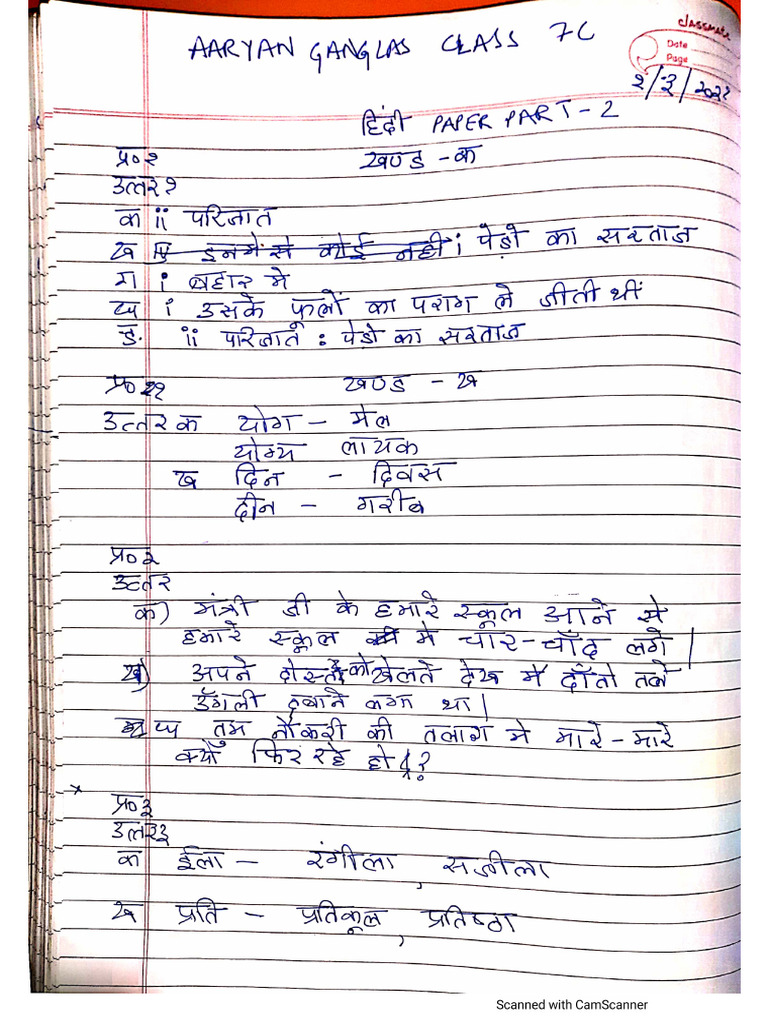 classmate
Date
Page
AARYAN GANGLAS CLASS 7C
२/३/२०२२
हिंदी PAPER PART - 2
प्र०२ खण्ड - क
उत्तर१
क ii परिजात
ख iv इनमें से कोई नहीं i पेड़ो का सरताज
ग i बहार मे
घ i उसके फूलों का पराग ले जीती थीं
ड. ii परिजात : पेड़ो का सरताज
प्र० खण्ड - ख
उत्तर क योग - मेल
योग्य लायक
ख दिन - दिवस
दीन - गरीब
प्र०२
उत्तर
क) मंत्री जी के हमारे स्कूल आने से
हमारे स्कूल मे चार-चाँद लगे |
ख) अपने दोस्त को खेलते देख मैं दाँतो तले
उँगली दबाने लगा था |
घ तुम नौकरी की तलाग मे मारे-मारे
क्यों फिर रहे हो ?
प्र०३
उत्तर३
क ईला - रंगीला, सजीला
ख प्रति - प्रतिकूल, प्रतिष्ठा
Scanned with CamScanner